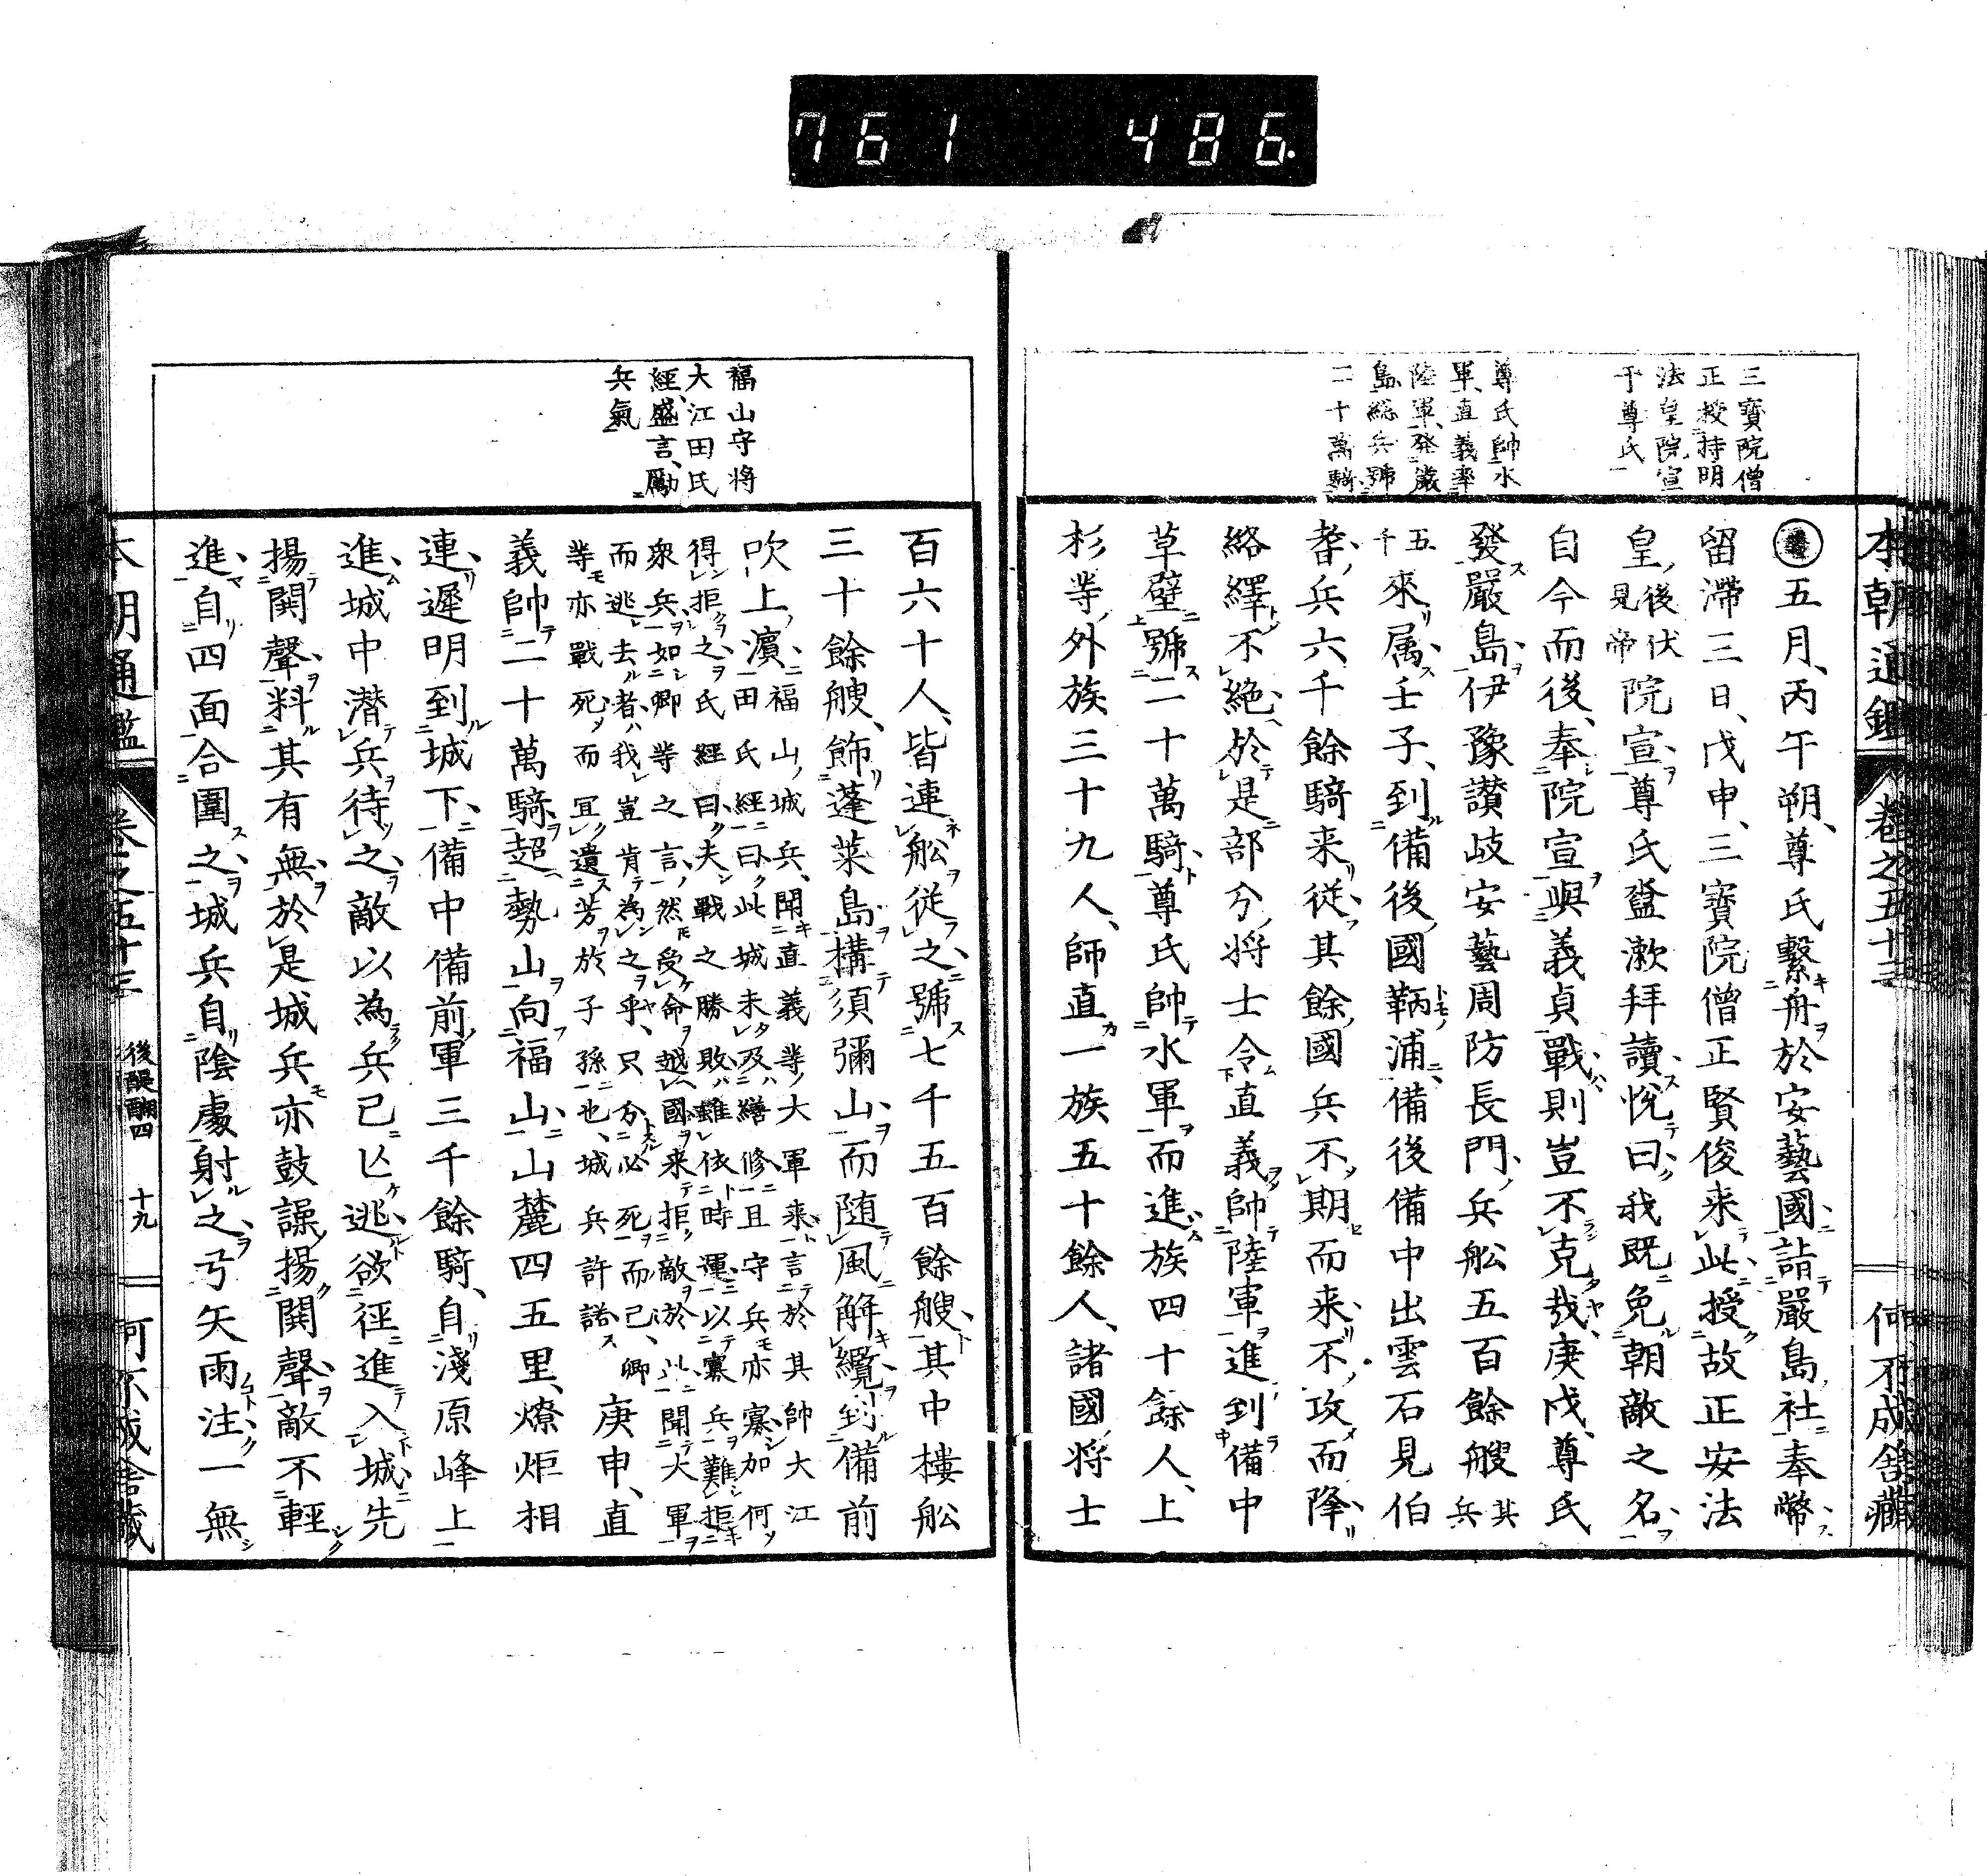 761 486.
本朝通鑑 卷之五十三 何不成舍藏
三寶院僧
正授持明
法皇院宣
于尊氏
尊氏帥水
軍直義率
陸軍發嚴
島總兵號
二十萬騎
五月丙午朔尊氏繫舟於安藝國詣嚴島社奉幣
留滯三日戊申三寶院僧正賢俊来此授故正安法
皇後伏見帝院宣尊氏盥漱拜讀悅曰我既免朝敵之名
自今而後奉院宣與義貞戰則豈不克哉庚戌尊氏
發嚴島伊豫讃歧安藝周防長門兵舩五百餘艘其兵
五千來属壬子到備後國鞆浦備後備中出雲石見伯
耆兵六千餘騎来從其餘國兵不期而来不攻而降
絡繹不絕於是部分將士令直義帥陸軍進到備中
草壁號二十萬騎尊氏帥水軍而進族四十餘人上
杉等外族三十九人師直一族五十餘人諸國將士
福山守將
大江田氏
經盛言勵
兵氣
百六十人皆連舩從之號七千五百餘艘其中樓舩
三十餘艘飾蓬萊島構須彌山而随風解纜到備前
吹上濵福山城兵聞直義等大軍来言於其帥大江
田氏經曰此城未及繕修且守兵亦寡加何
得拒之氏經曰夫戰之勝敗雖依時運以寡兵難拒
衆兵如卿等之言然受命越國来拒敵於此聞大軍
而逃去者我豈肯為之乎只分必死而已卿
等亦戰死而冝遺芳於子孫也城兵許諾庚申直
義帥二十萬騎超勢山向福山山麓四五里燎炬相
連遲明到城下備中備前軍三千餘騎自淺原峰上
進城中潜兵待之敵以為兵已亡逃欲徑進入城先
揚鬨聲料其有無於是城兵亦鼓譟揚鬨聲敵不輕
進自四面合圍之城兵自陰處射之弓矢雨注一無
本朝通鑑 卷之五十三 後醍醐四 十九 何不成舍藏